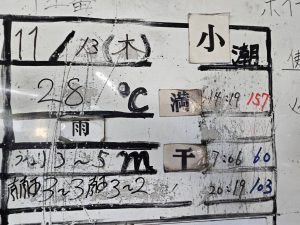 11/13(木) 小潮
28 ℃ 満 14:19 157
雨
3~5m 干 7:06 60
3~3 3~2 20:19 103